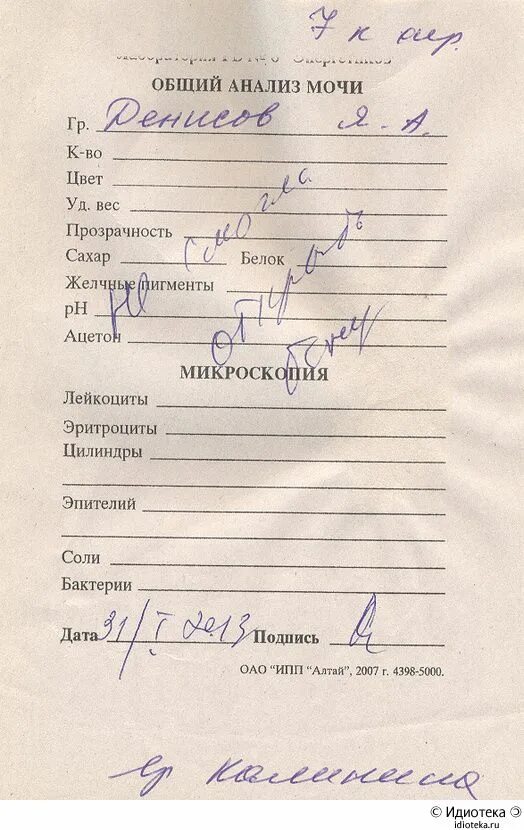 7 к
ОБЩИЙ АНАЛИЗ МОЧИ
Гр. Денисов Я. А.
К-во
Цвет
Уд. вес
Прозрачность
Сахар Белок
Желчные пигменты
рН
Ацетон
не смогла открыть банку
МИКРОСКОПИЯ
Лейкоциты
Эритроциты
Цилиндры
Эпителий
Соли
Бактерии
Дата 31/I 2013 Подпись
ОАО "ИПП "Алтай", 2007 г. 4398-5000.
вр Калинина
© Идиотека
idioteka.ru